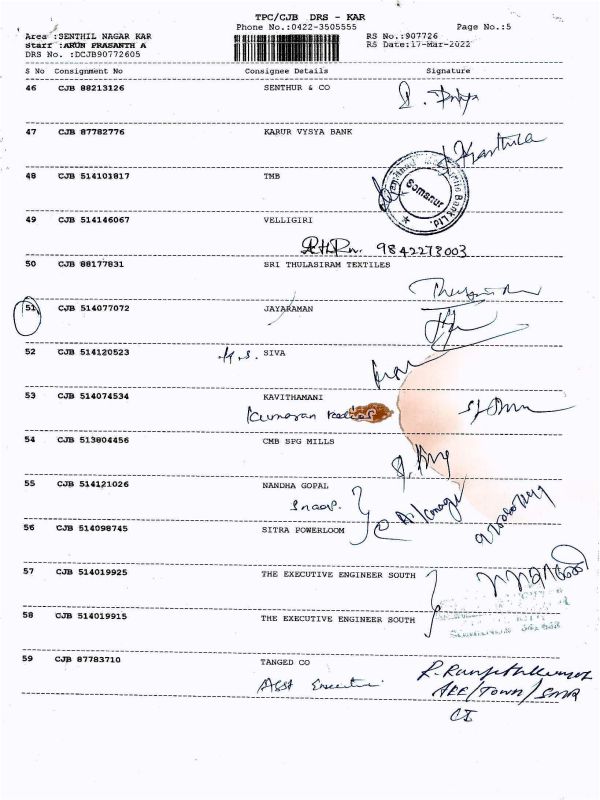 TPC/CJB DRS - KAR
Phone No.:0422-3505555 Page No.:5
Area :SENTHIL NAGAR KAR RS No.:907726
Staff :ARUN PRASANTH A RS Date:17-Mar-2022
DRS No. :DCJB90772605
S No Consignment No Consignee Details Signature
46 CJB 88213126 SENTHUR & CO
47 CJB 87782776 KARUR VYSYA BANK
48 CJB 514101817 TMB
Somanur
Bank Ltd.
49 CJB 514146067 VELLIGIRI
9842273003
50 CJB 88177831 SRI THULASIRAM TEXTILES
51 CJB 514077072 JAYARAMAN
52 CJB 514120523 SIVA
53 CJB 514074534 KAVITHAMANI
54 CJB 513804456 CMB SPG MILLS
55 CJB 514121026 NANDHA GOPAL
56 CJB 514098745 SITRA POWERLOOM
57 CJB 514019925 THE EXECUTIVE ENGINEER SOUTH
58 CJB 514019915 THE EXECUTIVE ENGINEER SOUTH
59 CJB 87783710 TANGED CO
AEE/TOWN/SMR